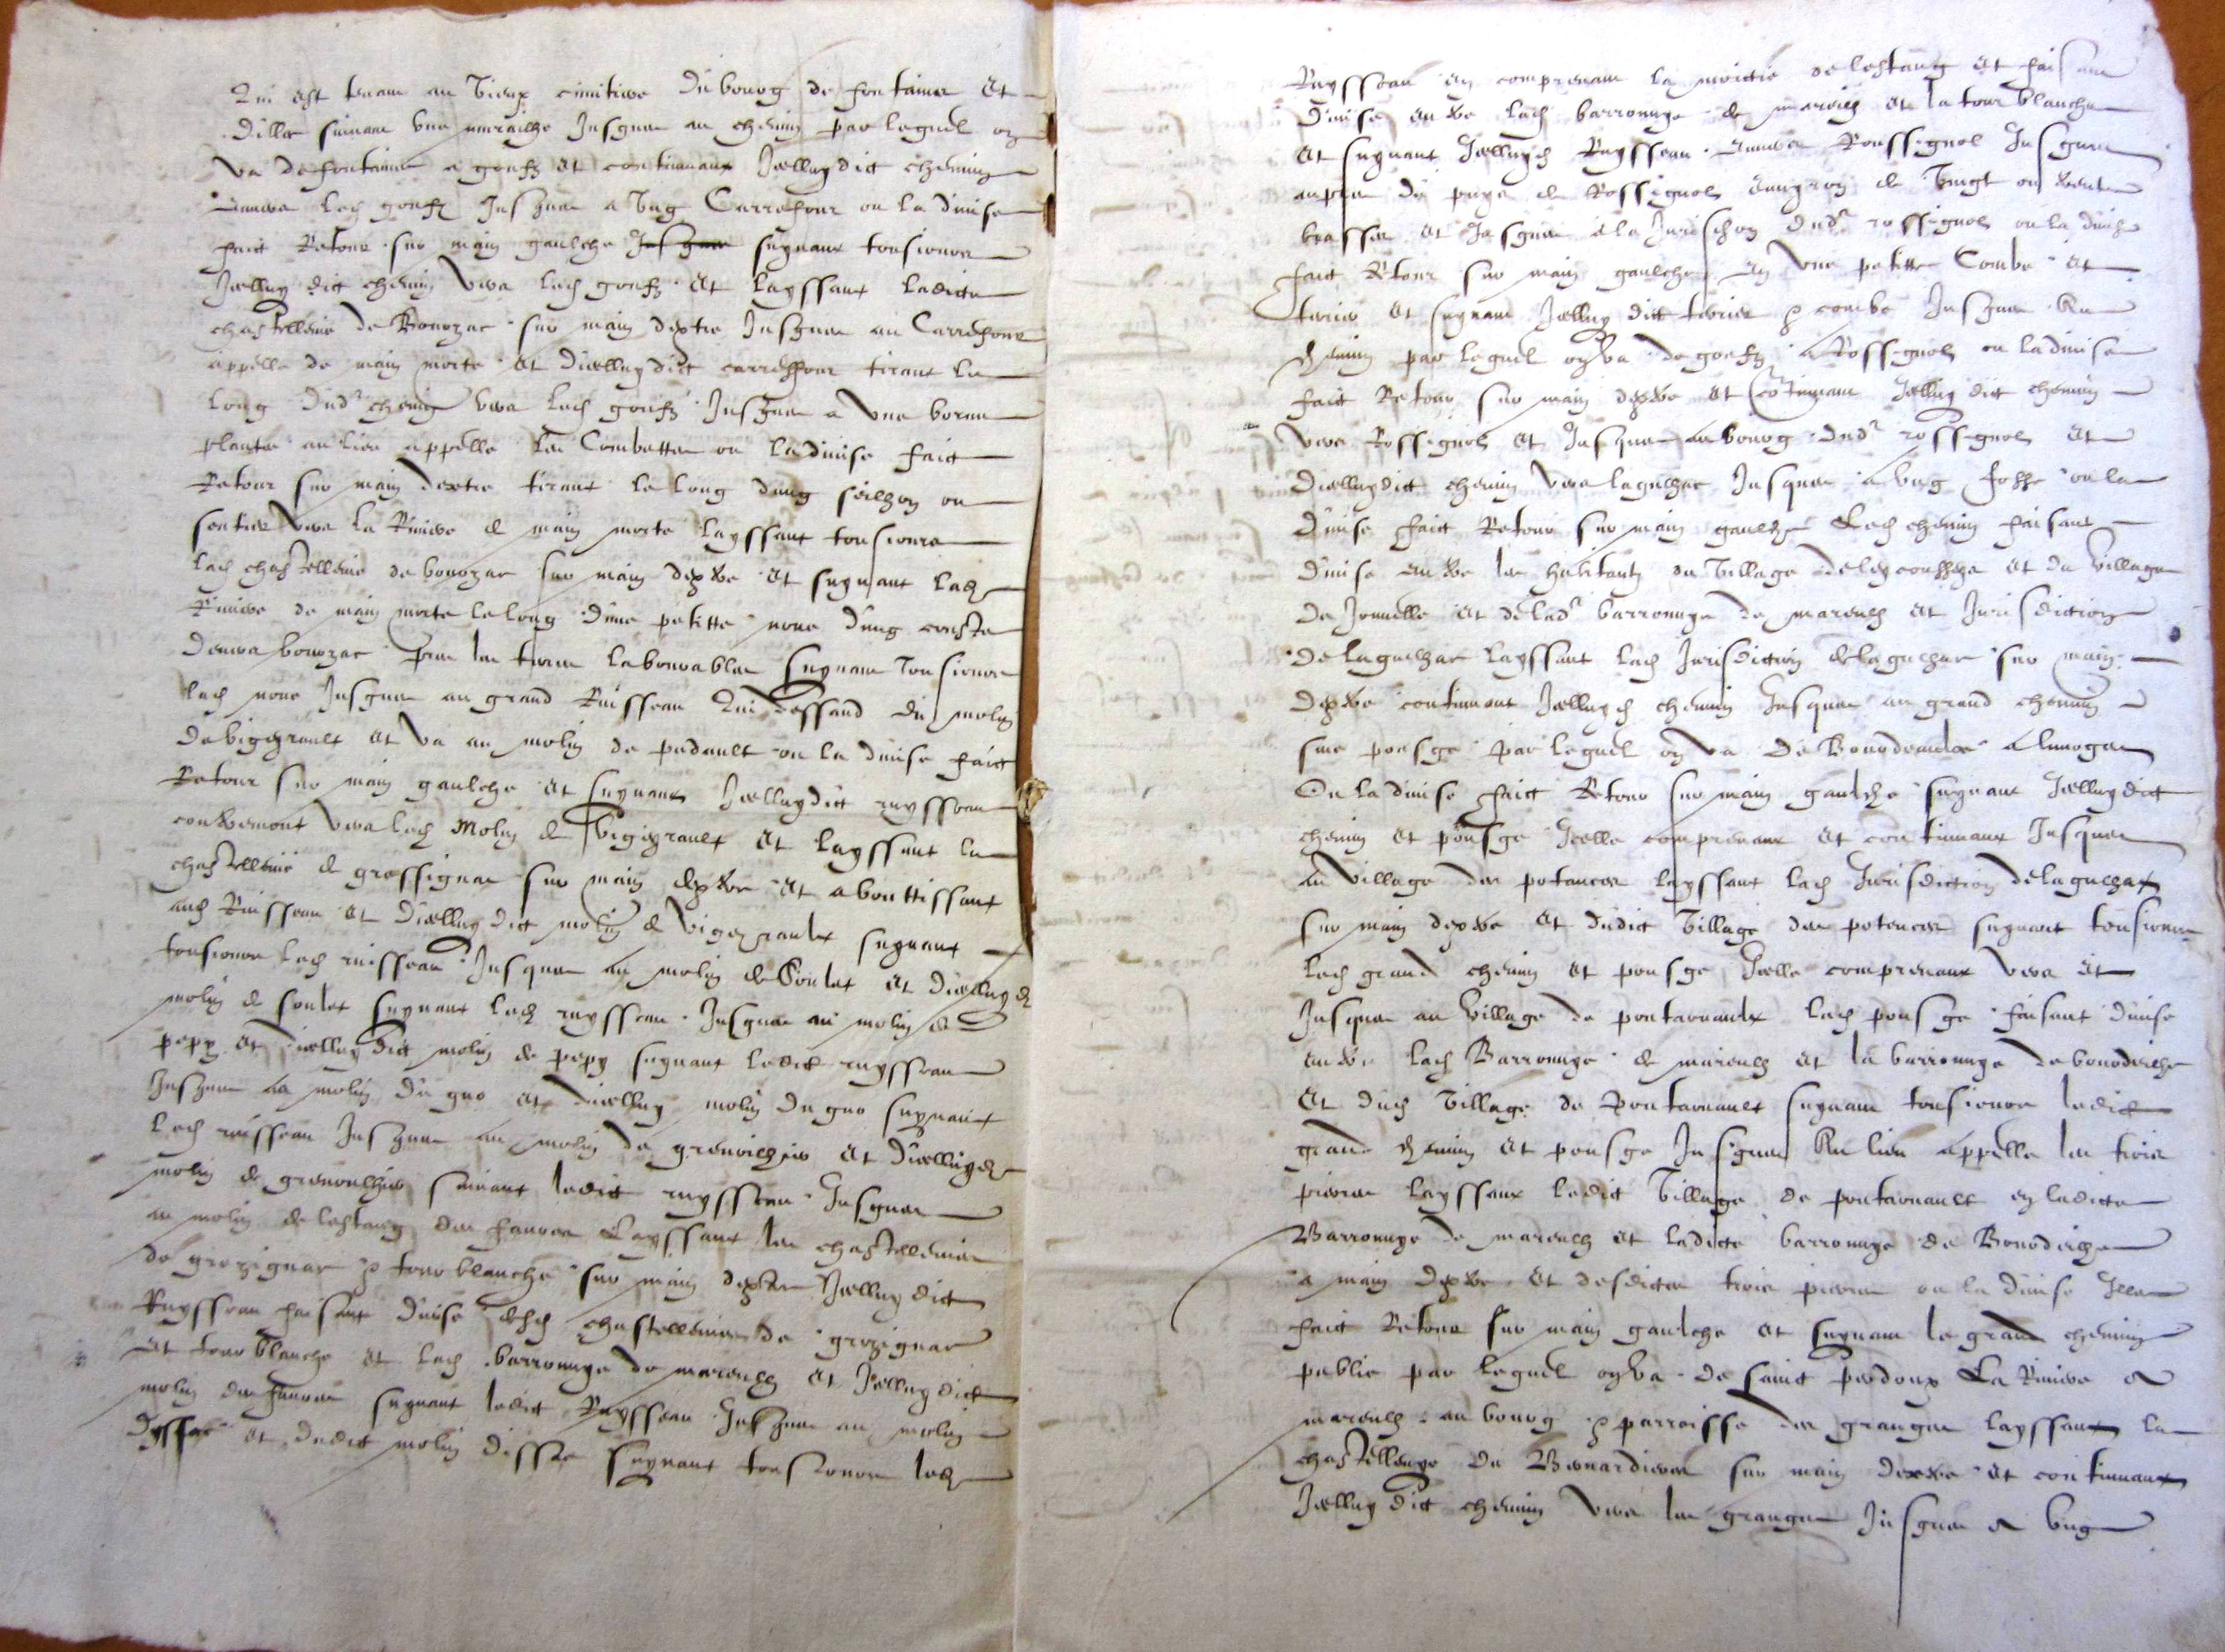 Qui est tenant au vieux cimitiere du bourg de fontaines et
dillec suivant une muraille jusques au chemin par lequel on
va de fontaines a goustz et continuant icelluy dict chemin
envers led goustz jusques a ung carrefour ou la divise
faict retour sur main gaulche suyvant tousiours
icelluy dict chemin vers led goustz et layssant ladicte
chastellenie de Bourzac sur main dextre jusques au carrefour
appelle de main morte et dicelluy dict carreffour tirant le
long dud chemin vers led goustz jusques a une borne
plantee au lieu appelle les Combettes ou la divise faict
Retour sur main dextre tirant le long dung seilhon ou
sentier vers la Riviere de main morte layssant tousiours
lad chastellenie de bourzac sur main dextre et suyvant lad
Riviere de main morte le long dune petitte noue dung couste
devers bourzac les terres labourables suyvant tousiours
lad noue jusques au grand Ruisseau qui dessand du molin
de vigeyrault et va au molin de pudault ou la divise faict
Retour sur main gaulche et suyvant icelluy dict ruysseau
contremont vers led molin de vigeyrault et layssant la
chastellenie de grossignac sur main dextre et abouttissant
aud Ruisseau et dicelluy dict molin de vigeyrault suyvant
tousiours led ruisseau jusques au molin de soulet et dicelluy d
molin de soulet suyvant led ruysseau jusques au molin de
pepy et dicelluy dict molin de pepy suyvant ledict ruysseau
jusques au molin du guo et dicelluy molin du guo suyvant
led ruisseau jusques au molin de grenoilhier et dicelluy d
molin de grenoulhier suivant ledict ruysseau jusques
au molin de lestang des faures layssant les chastellenies
de grezignac & tour blanche sur main dextre icelluy dict
Ruysseau faisant divise desd chastellenies de grezignac
et tour blanche et lad barronnye de mareulh et icelluy dict
molin des faures suyvant ledict Ruysseau jusques au molin
dyssac et dudict molin dissac suyvant tousiours led
Ruysseau en comprenant la moictie de lestang et faisant
divise entre lad barronnye de mareulh et la tour blanche
et suyvant icelluy d Ruysseau envers Roussignol jusques
aupres du puys de Rossignol environ de vingt ou trente
brasses et jusques a la jurisdiction dud rossignol ou la divise
faict retour sur main gaulche en une petitte combe et
terrier et suyvant icelluy dict terrier & combe jusques au
chemin par lequel on va de goustz a Rossignol ou la divise
faict Retour sur main dextre et continuant icelluy dict chemin
vers Rossignol et jusques au bourg dud rossignol et
dicelluy dict chemin vers lagulhac jusques a ung fosse ou la
divise faict Retour sur main gaulche led chemin faisant
divise entre les habitantz du village de et du village
de Jonnelle et de lad barronnye de mareulh et jurisdiction
de laguilhac layssant lad jurisdiction de laguilhac sur main
dextre continuant icelluy d chemin jusques au grand chemin
sive pousge par lequel on va de Bourdeaulx a limoges
Ou la divise faict Retour sur main gaulche suyvant icelluy dict
chemin et pousge icelle comprenant et continuant jusques
au village des potances layssant lad jurisdiction de laguilhac
sur main dextre et dudict village des potences suyvant tousiours
led grand chemin et pousge icelle comprenant vers et
jusques au village de pontarnault lad pousge faisant divise
entre lad Barronnye de mareulh et la barronnye de bourdeilhe
Et dud village de Pontarnault suyvant tousiours ledict
grand chemin et pousge jusques au lieu appelle les trois
pierres layssant ledict village de pontarnault en ladicte
Barronnye de mareulh et ladicte barronnye de Bourdeilhe
a main dextre et desdictes trois pierres ou la divise illec
faict Retour sur main gaulche et suyvant le grand chemin
public par lequel on va de sainct pardoux la Riviere a
mareulh au bourg & parroisse des granges layssant la
chastellenye du Bernardieres sur main dextre et continuant
icelluy dict chemin vers les granges jusques a ung